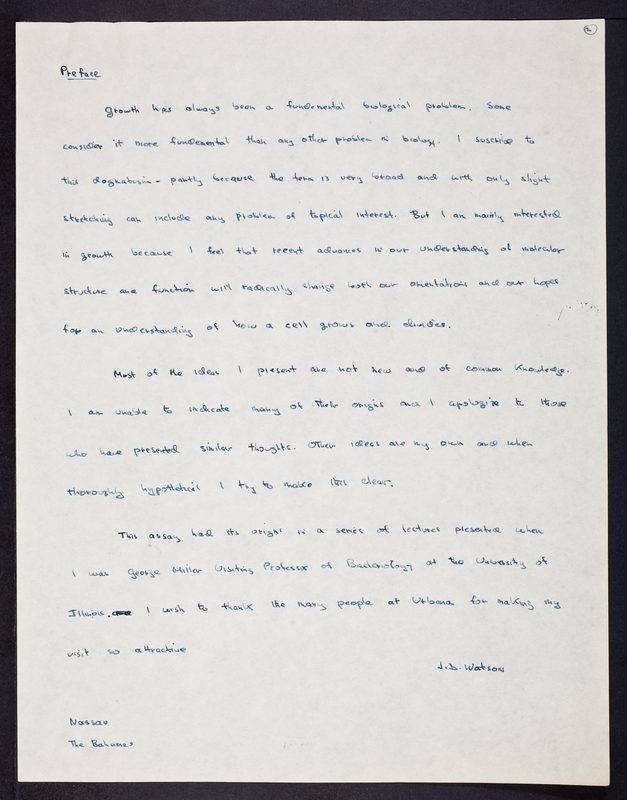 2
Preface
Growth has always been a fundemental biological problem. Some
consider it more fundemental than any other problem in biology. I suscribe to
this dogmatism - partly because the term is very broad and with only slight
stretching can include any problem of topical interest. But I am mainly interested
in growth because I feel that recent advances in our understanding of molecular
structure and function will radically change both our orientations and our hopes
for an understanding of how a cell grows and divides.
Most of the ideas I present are not new and of common knowledge.
I am unable to indicate many of their origins and I apologize to those
who have presented similar thoughts. Other ideas are my own and when
thoroughly hypothetical I try to make this clear.
This assay had its origins in a series of lectures presented when
I was George Miller Visiting Professor of Bacteriology at the University of
Illinois. I wish to thank the many people at Urbana for making my
visit so attractive
J.D. Watson
Nassau
The Bahamas